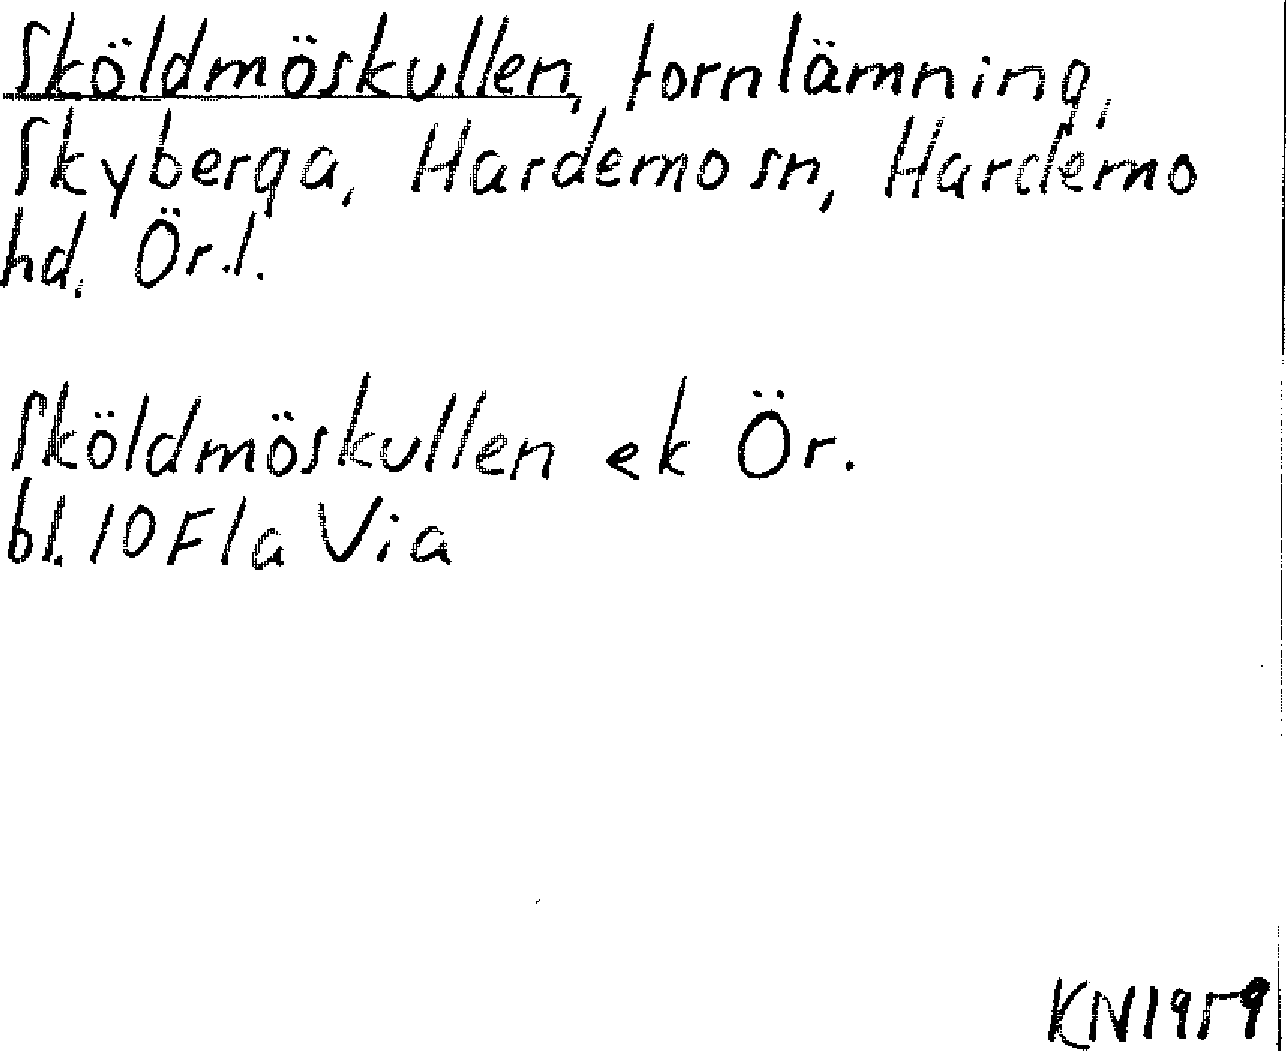 Sköldmöskullen, fornlämning,
Skyberga, Hardemo sn, Hardemo
hd. Ör.l.
Sköldmöskullen ek Ör.
bl. 10 F 1 a Via
KN 1959